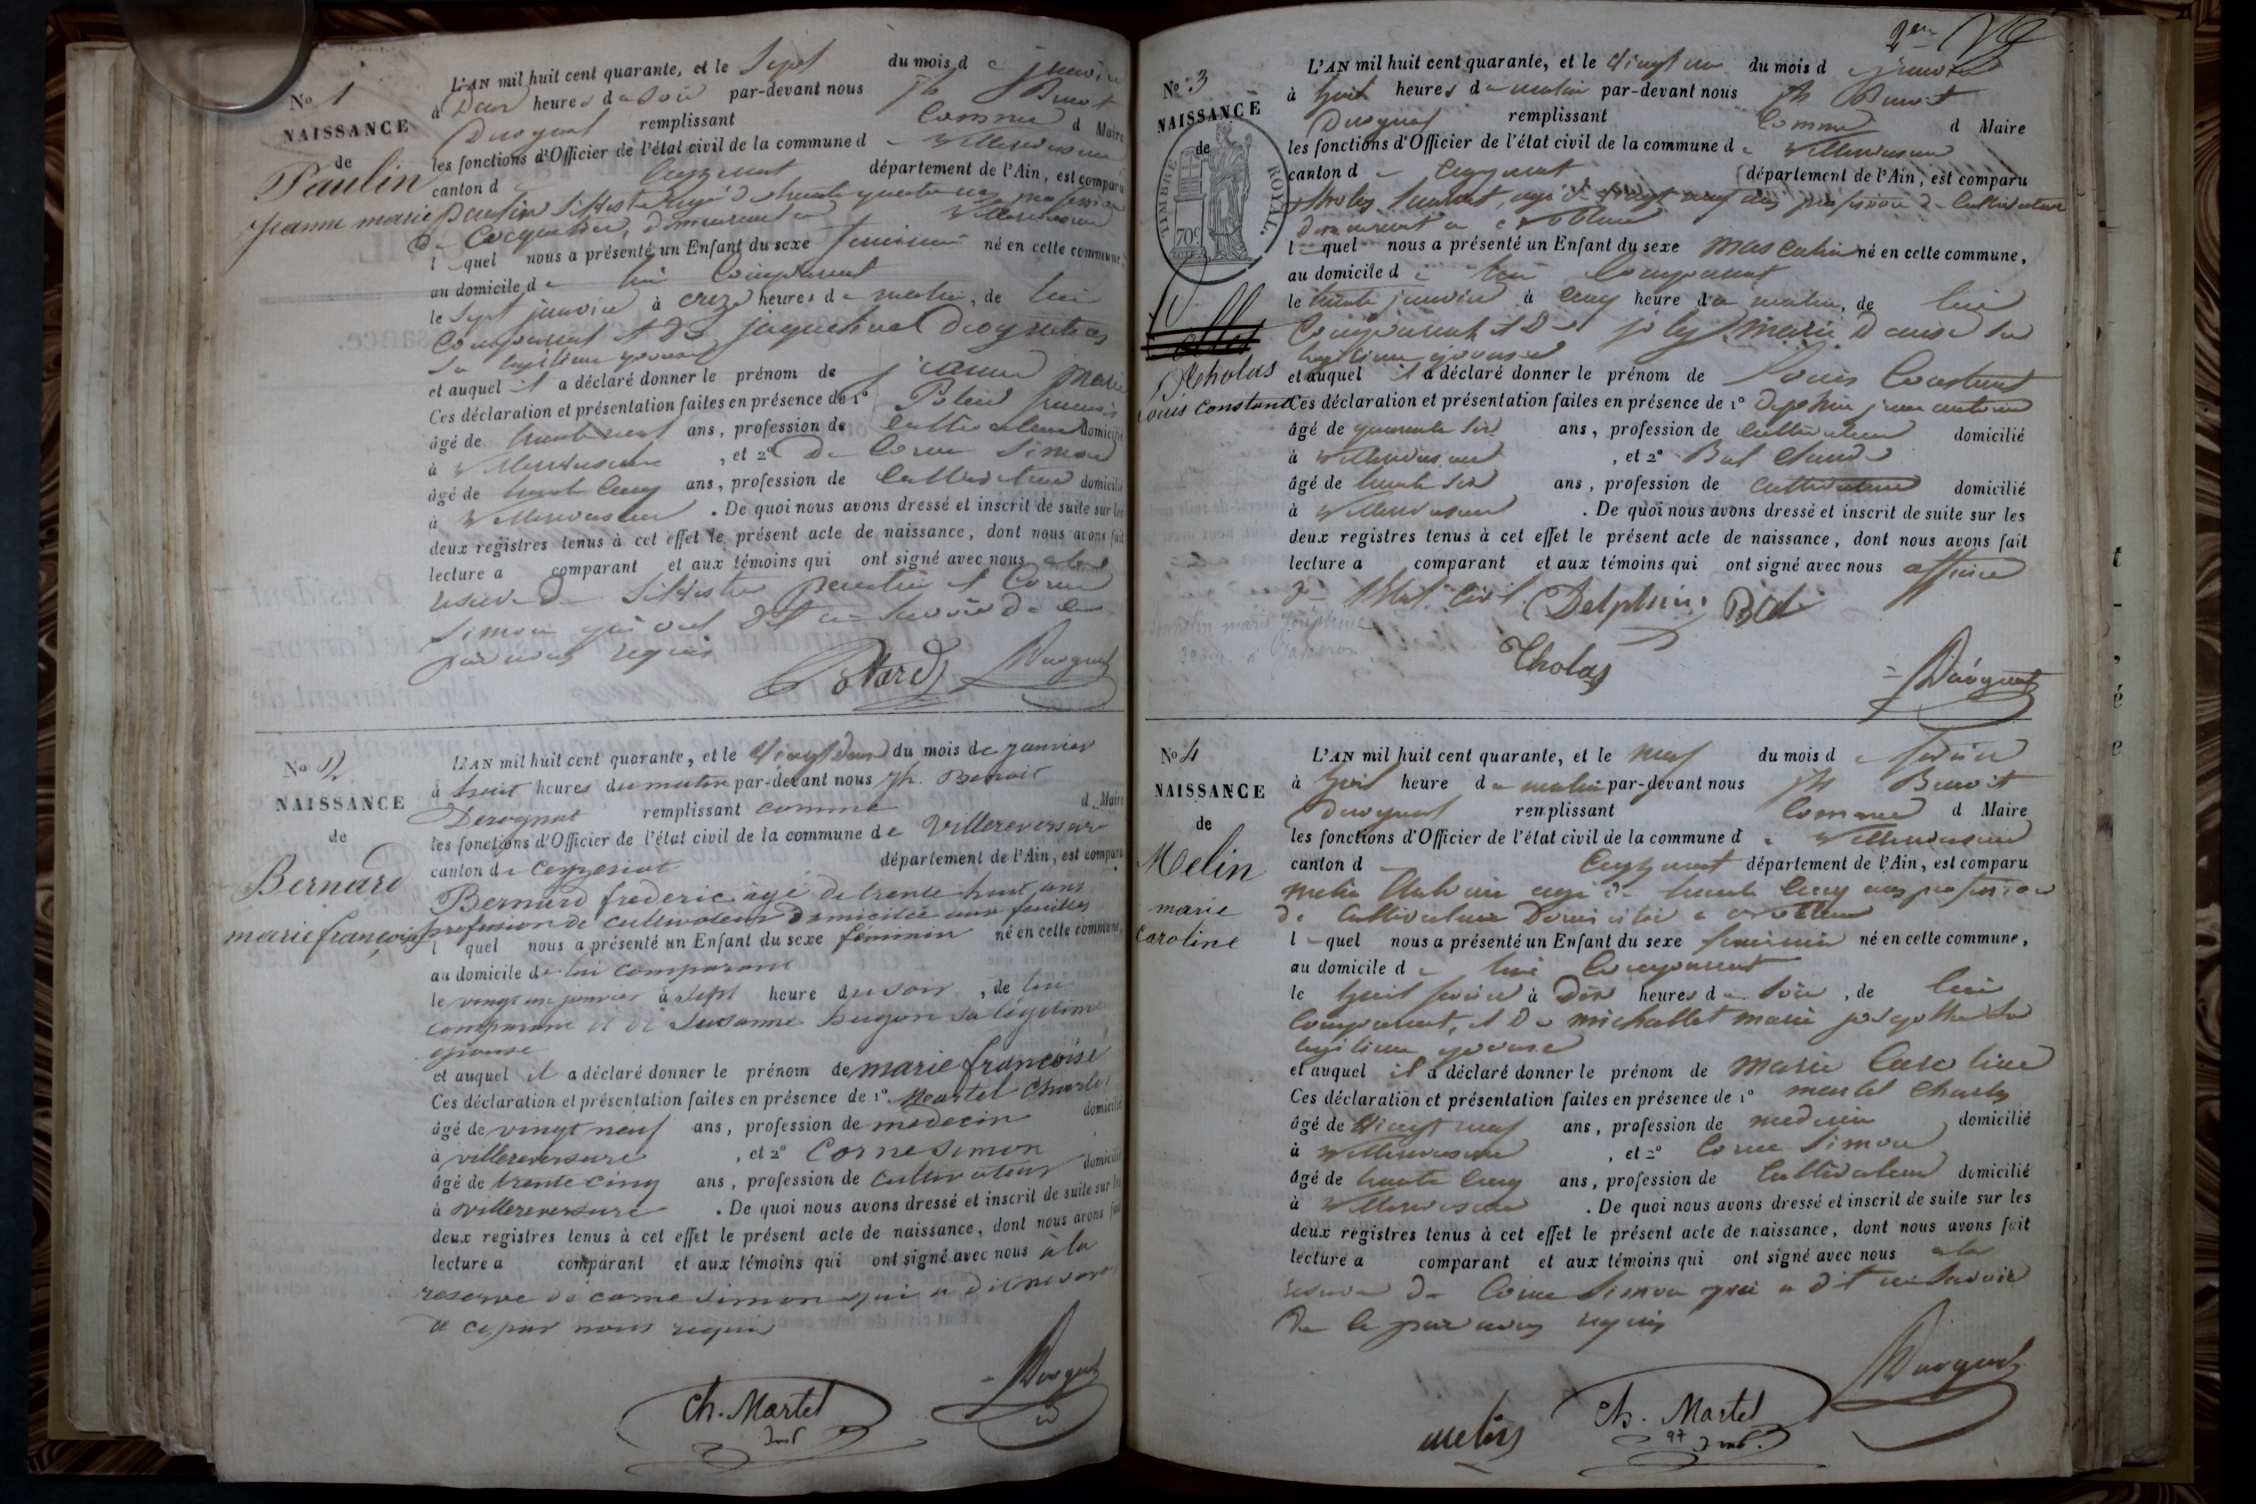 No 1
NAISSANCE
de
Paulin
jeanne marie
L'AN mil huit cent quarante, et le Sept du mois de janvier
à Deux heures du Soir par-devant nous Jh Benoit
Duvognat remplissant Comme d Maire
les fonctions d'Officier de l'état civil de la commune de Villereversure
canton d Ceyzeriat département de l'Ain, est comparu
paulin Silvestre âgé de trente quatre ans profession
de Coquetier, demeurant à Villereversure
lequel nous a présenté un Enfant du sexe féminin né en cette commune,
au domicile de lui Comparant
le Sept janvier à onze heures du matin, de lui
Comparant et de jaqueline
Sa legitime epouse
et auquel il a déclaré donner le prénom de jeanne marie
Ces déclaration et présentation faites en présence de 1°
âgé de ans, profession de Cultivateur domicilié
à Villereversure, et 2° De Corne Simon
âgé de trente Cinq ans, profession de Cultivateur domicilié
à Villereversure. De quoi nous avons dressé et inscrit de suite sur les
deux registres tenus à cet effet le présent acte de naissance, dont nous avons fait
lecture a comparant et aux témoins qui ont signé avec nous a la
reserve de Silvestre paulin et Corne
Simon qui ont Dit ne Savoir de ce
par nous requis
Duvognat
No 2
NAISSANCE
de
Bernard
marie françoise
L'AN mil huit cent quarante, et le Vingt Deux du mois de janvier
à huit heures du matin par-devant nous Jh. Benoit
Devognat remplissant comme d Maire
les fonctions d'Officier de l'état civil de la commune de Villereversure
canton de Ceyzeriat département de l'Ain, est comparu
Bernard frederic âgé de trente huit ans
profession de cultivateur domicilié aux feuilles
l quel nous a présenté un Enfant du sexe féminin né en cette commune,
au domicile de lui comparant
le vingt un janvier à sept heure du soir, de lui
comparant et de Susanne hugon sa légitime
epouse
et auquel il a déclaré donner le prénom de marie françoise
Ces déclaration et présentation faites en présence de 1° Martel Charles
âgé de vingt neuf ans, profession de medecin domicilié
à villereversure, et 2° Corne Simon
âgé de trente cinq ans, profession de cultivateur domicilié
à villereversure. De quoi nous avons dressé et inscrit de suite sur les
deux registres tenus à cet effet le présent acte de naissance, dont nous avons fait
lecture a comparant et aux témoins qui ont signé avec nous à la
reserve de corne simon qui a dit ne savoir
de ce par nous requis
Ch. Martel
Duvognat
No 3
NAISSANCE
de
TIMBRE ROYAL.
70c
Tholas
Louis Constant
L'AN mil huit cent quarante, et le Vingt un du mois de janvier
à huit heures du matin par-devant nous Jh Benoit
Duvognat remplissant Comme d Maire
les fonctions d'Officier de l'état civil de la commune de Villereversure
canton de Ceyzeriat département de l'Ain, est comparu
Tholas âgé de vingt neuf ans profession de Cultivateur
Demeurant a
lequel nous a présenté un Enfant du sexe masculin né en cette commune,
au domicile de lui Comparant
le trente janvier à Cinq heure du matin, de lui
Comparant et De joly marie Sa
legitime epouse
et auquel il a déclaré donner le prénom de Louis Constant
Ces déclaration et présentation faites en présence de 1° Delphin jean antoine
âgé de quarante Six ans, profession de Cultivateur domicilié
à Villereversure, et 2° Bal Claude
âgé de trente Six ans, profession de cultivateur domicilié
à Villereversure. De quoi nous avons dressé et inscrit de suite sur les
deux registres tenus à cet effet le présent acte de naissance, dont nous avons fait
lecture a comparant et aux témoins qui ont signé avec nous officier
de l'Etat Civil
Delphin Bal
Tholas
Duvognat
No 4
NAISSANCE
de
Melin
marie
Caroline
L'AN mil huit cent quarante, et le neuf du mois de février
à huit heure du matin par-devant nous Jh Benoit
Duvognat remplissant Comme d Maire
les fonctions d'Officier de l'état civil de la commune de Villereversure
canton d Ceyzeriat département de l'Ain, est comparu
melin Antoine âgé de trente Cinq ans profession
de Cultivateur Domicilié a
lequel nous a présenté un Enfant du sexe feminin né en cette commune,
au domicile de lui Comparant
le huit février à Dix heures du Soir, de lui
Comparant, et De michallet marie Sa
legitime epouse
et auquel il a déclaré donner le prénom de Marie Caroline
Ces déclaration et présentation faites en présence de 1° martel Charles
âgé de Vingt neuf ans, profession de medecin domicilié
à Villereversure, et 2° Corne Simon
âgé de trente Cinq ans, profession de Cultivateur domicilié
à Villereversure. De quoi nous avons dressé et inscrit de suite sur les
deux registres tenus à cet effet le présent acte de naissance, dont nous avons fait
lecture a comparant et aux témoins qui ont signé avec nous a la
reserve De Corne Simon qui a dit ne Savoir
De Ce par nous requis
melin
Ch. Martel
Duvognat